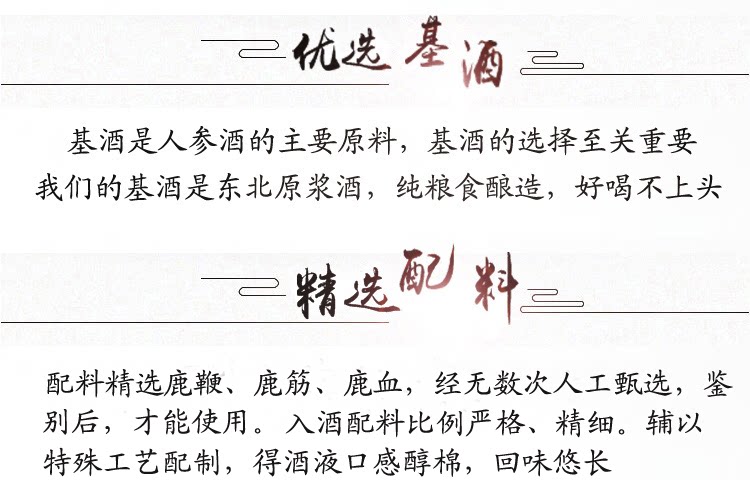 优选基酒
基酒是人参酒的主要原料，基酒的选择至关重要
我们的基酒是东北原浆酒，纯粮食酿造，好喝不上头
精选配料
配料精选鹿鞭、鹿筋、鹿血，经无数次人工甄选，鉴
别后，才能使用。入酒配料比例严格、精细。辅以
特殊工艺配制，得酒液口感醇棉，回味悠长